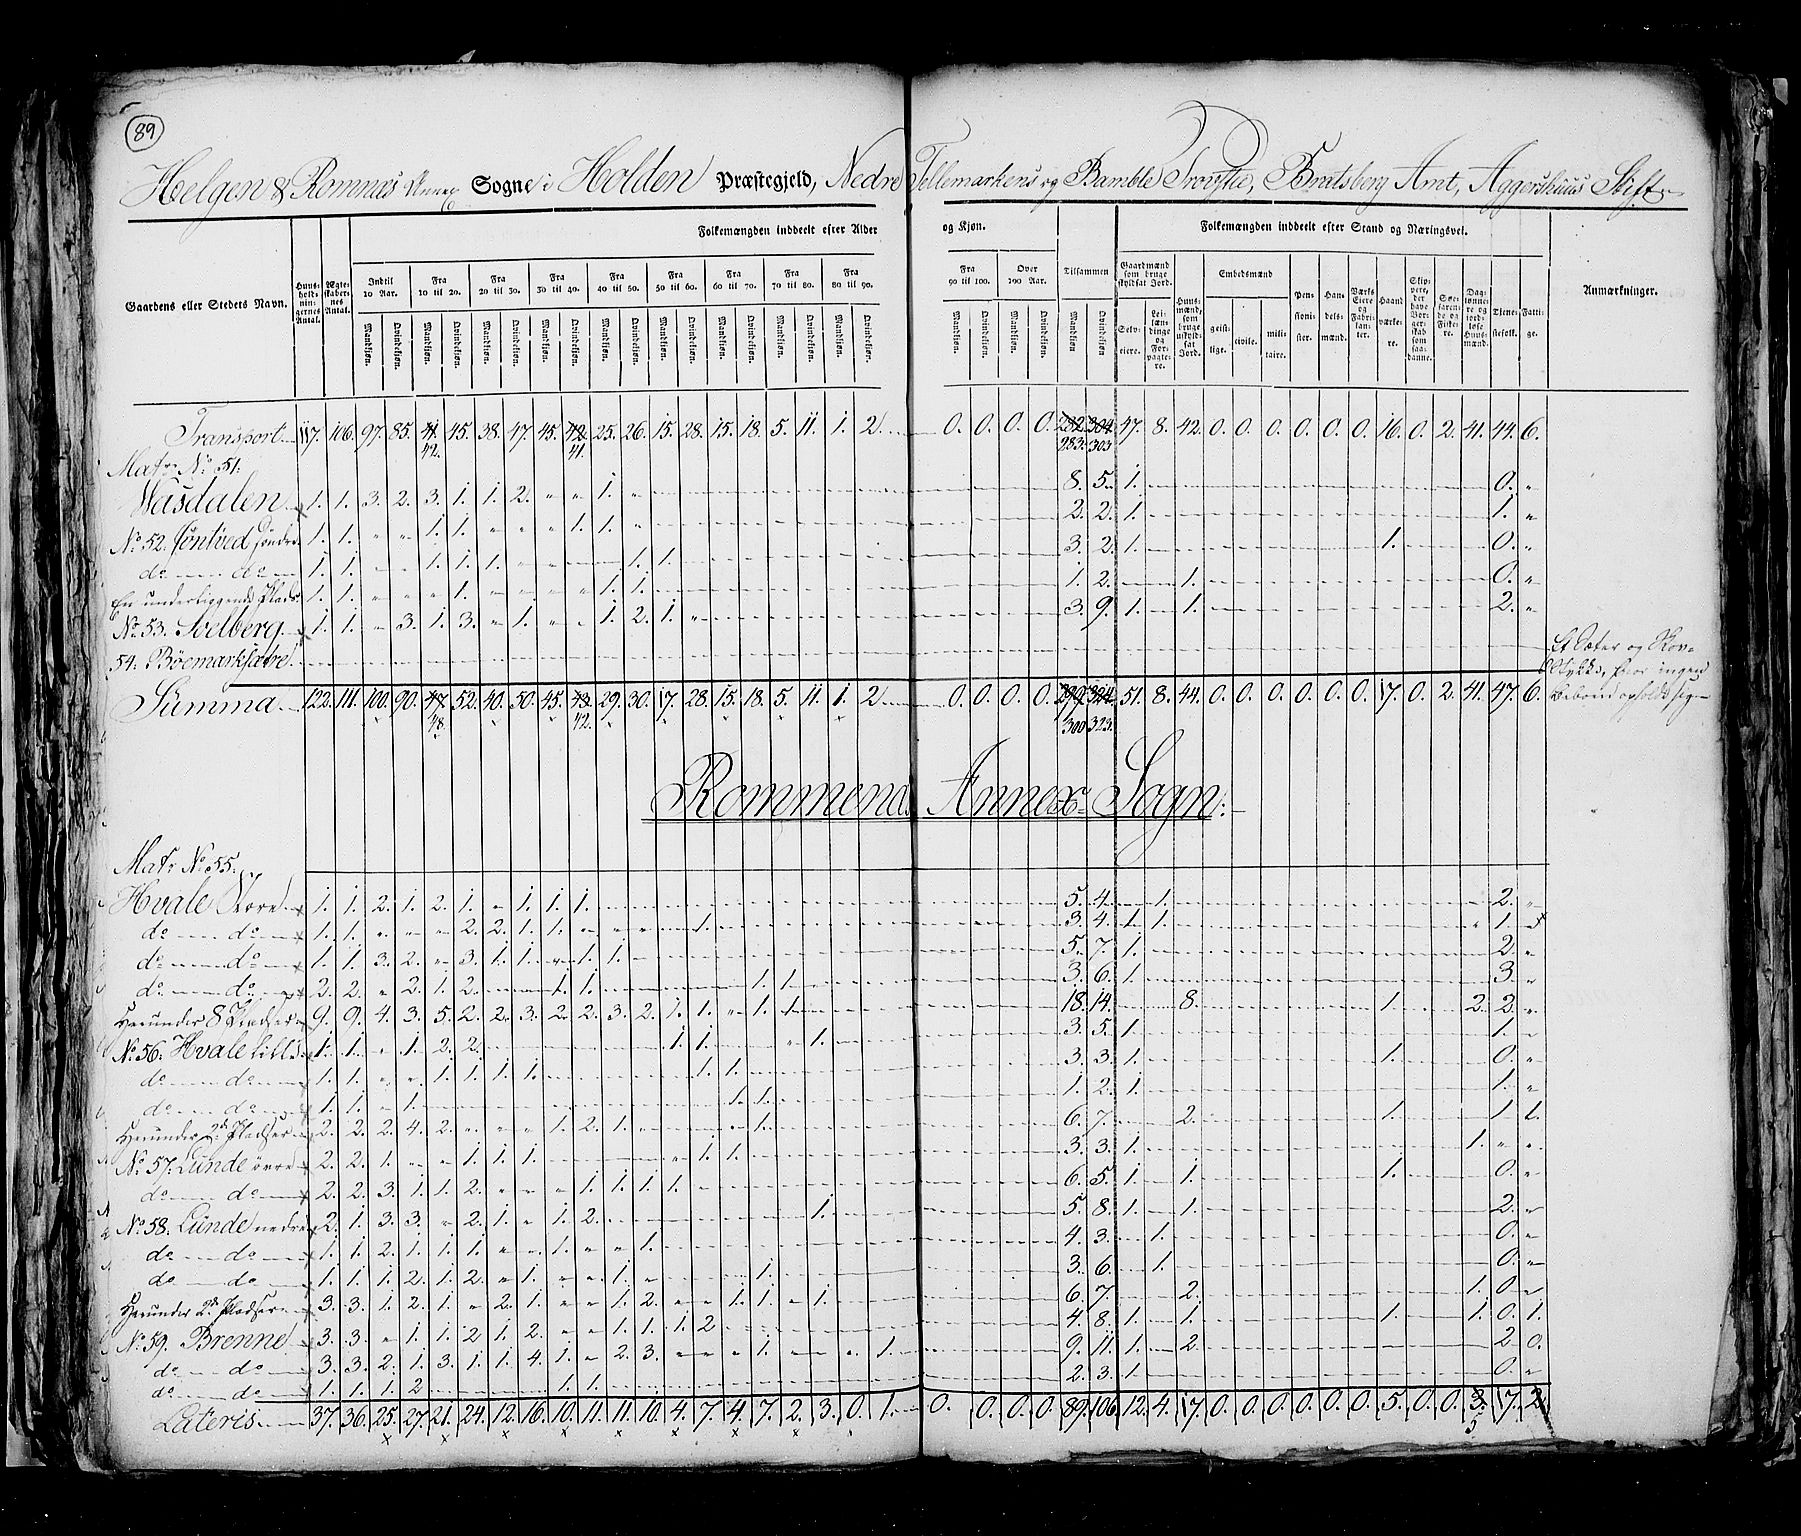 89
Helgen & Romnæs Annex Sogne i Holden Præstegjeld, Nedre Tellemarkens og Bamble Provstie, Bratsberg Amt, Aggershuus Stift
Gaardens eller Stedets Navn. Huusholdningernes Antal. Ægteskabernes Antal. Folkemængden inddeelt efter Alder og Kjøn. Folkemængden inddeelt efter Stand og Næringsvei. Anmærkninger.
Indtil 10 Aar. Fra 10 til 20. Fra 20 til 30. Fra 30 til 40. Fra 40 til 50. Fra 50 til 60. Fra 60 til 70. Fra 70 til 80. Fra 80 til 90. Fra 90 til 100. Over 100 Aar. Tilsammen
Gaardmænd som bruge skyldsat Jord. Huusmænd, som bruge uskyldsat Jord. Embedsmænd Pensionister. Handelsmænd. Værks Eiere og Fabrikanter. Haandværkere. Skippere, der have Borgerskab som saadanne. Søefarende og Fiskere. Daglønnere og jordløse Huusmænd. Tjenestefolk. Fattige.
Mandkjøn. Qvindekjøn. Selveiere. Leilændinge og Forpagtere. geistlige. civile. militaire.
Transport 117. 106. 97. 85. 41. 42. 45. 38. 47. 45. 42. 41. 25. 26. 15. 28. 15. 18. 5. 11. 1. 2. 0. 0. 0. 0. 282. 304. 47. 8. 42. 0. 0. 0. 0. 0. 0. 16. 0. 2. 41. 44. 6.
283. 303
Matr No 51:
Wasdalen 1. 1. 3. 2. 3. 1. 1. 2. " " 1. " 8. 5. 1. 0. "
No 52. Jøntved Søndre 1. 1. " " 1. 1. " " " 1. 1. " 2. 2. 1. 1. "
do do 1. 1. " " 1. 1. 1. 1. 1. 3. 2. 1. 1. 0. "
En underliggende Plads 1. 1. " " " 1. 1. 1. 1. 2. 1. 0. "
No 53. Solberg 1. 1. " 3. 1. 3. " 1. " " 1. 2. 1. " 3. 9. 1. 1. 2. "
54. Böemarksætre. Et Sæter og Skovstykke, hvor ingen
Summa 122. 111. 100. 90. 47. 48. 52. 40. 50. 45. 43. 42. 29. 30. 17. 28. 15. 18. 5. 11. 1. 2 0. 0. 0. 0. 299. 324. 51. 8. 44. 0. 0. 0. 0. 0. 0. 17. 0. 2. 41. 47. 6.
300 323.
Rommenæs Annex Sogn:
Matr No 55.
Hvale Nore 1. 1. 2. 1. 2. 1. " 1. 1. 1. 5. 4. 1. 2. "
do do 1. 1. " " " 2. 2. 1. 1. 1. 3. 4. 1. 1. " 1.
do do 1. 1. 3. 2. " 3. 1. 1. " 1. 1. 5. 7. 1. 2. "
do do 2. 2. " 2. 1. 2. 1. 1. 1. 1. 3. 6. 1. 3. "
Herunder 8 Pladser 9. 9. 4. 3. 5. 2. 2. 3. 2. 2. 3. 2. 1. 1. " 1. 1. 18. 14. 8. 1. 2. 2. "
No 56. Hvale lille 1. 1. " 1. 2. 2. 1. 1. " 1. 3. 5. 1. 1. "
do do 1. 1. " " 1. 1. 1. 1. 1. 1. 3. 3. 1. 1. 0. "
do do 1. 1. " 1. 1. 1. 1. 2. 1. 1. "
Herunder 2de Pladser 2. 2. 2. 4. 2. " " " 1. 2. 1. 1. 6. 7. 2. 1. 1. 1.
No 57. Lunde övre 2. 2. 1. " " 1. 1. 1. 1. 1. 3. 3. 1. 1. " "
do do 2. 2. 3. 1. 1. 2. " " " 1. 1. 1. 1. 6. 5. 1. 1. 1. 0. "
No 58. Lunde nedre 2. 1. 3. 3. " 2. 1. " 1. 2. 1. 5. 8. 1. 1. 2. "
do do 1. 1. 2. 1. 1. 1. " " 1. " " 1. 4. 3. 1. 0. "
do do 1. 1. 1. 2. 1. 2. " 1. " " 1. " 1. 3. 6. 1. 0. "
Herunder 2de Pladser 3. 3. 1. 2. 1. " 2. 1. " " 1. 2. " " 1. 1. " 1. 6. 7. 2. 1. 0. "
No 59. Brenne 3. 3. " 1. 1. 2 1. 2. " " 1. 1. 1. 2 4. 8. 1. 1. 1. 1. 0. 1.
do do 3. 3. 2. 1. 3. 1. 1. 4. 1. " 2. 3. " " " 1. " " " 1. 9. 11. 1. 2. 2. 0.
do do 1. 1. 1. 2 1. 1. 2. 3. 1 0. "
Lateris 37. 36. 25. 27. 21. 24. 12. 16. 10. 11. 11. 10. 4. 7. 4. 7. 2. 3. 0. 1. 0. 0. 0. 0. 89. 106. 12. 4. 17. 0. 0. 0. 0. 0. 0. 5. 0. 0. 17. 2.
5